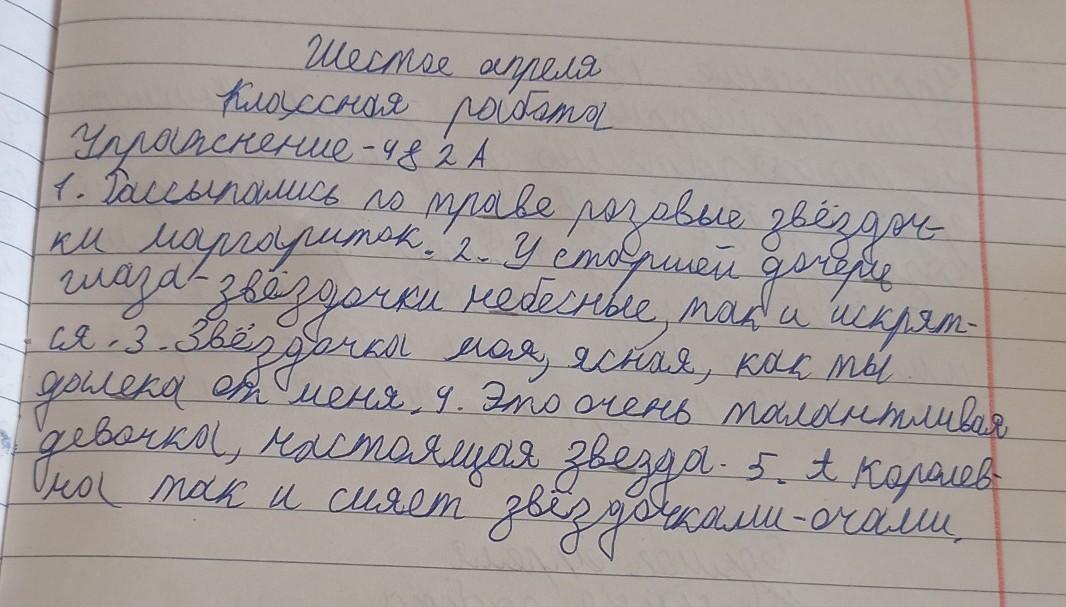 Шестое апреля
Классная работа
Упражнение-482А
1. Рассыпались по траве розовые звёздоч-
ки маргариток. 2. У старшей дочери
глаза-звёздочки небесные, так и искрят-
ся. 3. Звёздочка моя, ясная, как ты
далека от меня. 4. Это очень талантливая
девочка, настоящая звезда. 5. А Королев-
на так и сияет звёздочками-очами.